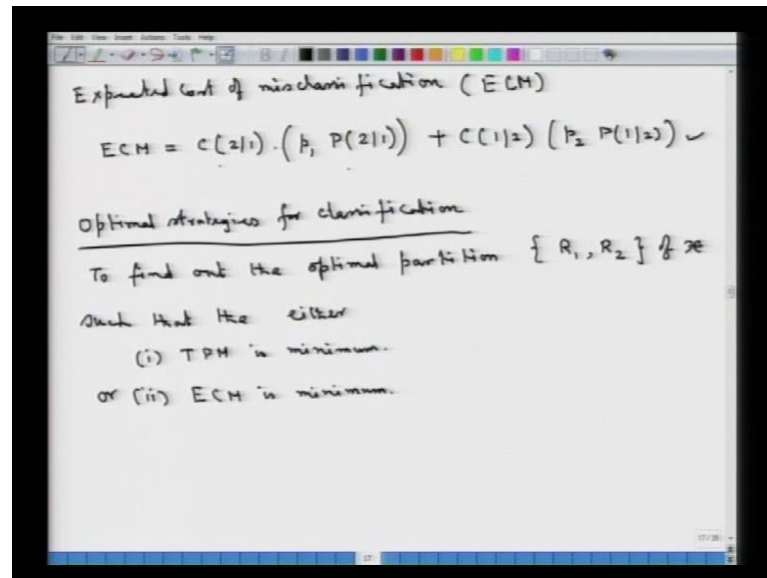 File Edit View Insert Actions Tools Help
Expected cost of misclassification (ECM)
ECM = C(2|1) . (p₁ P(2|1)) + C(1|2) (p₂ P(1|2)) ✓
Optimal strategies for classification
To find out the optimal partition { R₁, R₂ } of 𝒳
such that the either
(i) TPM is minimum.
or (ii) ECM is minimum.
17